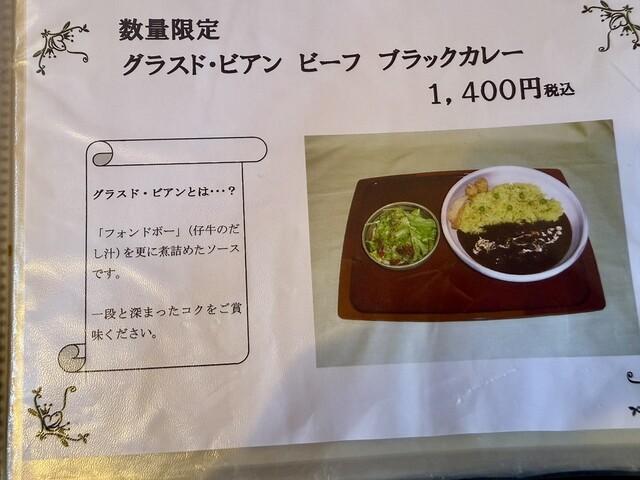 数量限定
グラスド・ビアン ビーフ ブラックカレー
1,400円税込
グラスド・ビアンとは・・・？
「フォンドボー」（仔牛のだ
し汁）を更に煮詰めたソース
です。
一段と深まったコクをご賞
味ください。